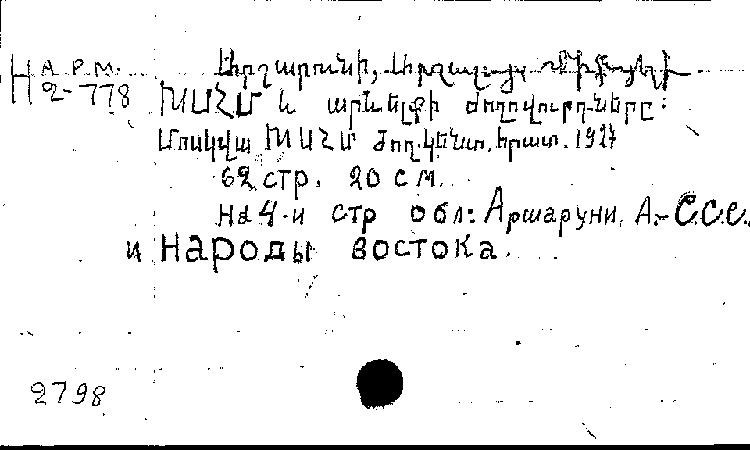 Н АРМ.
2-778
Արշարունի, Արշալույս
ԽՍՀՄ և արևելքի ժողովուրդները:
Մոսկվա ԽՍՀՄ ժող. կենտ. հրատ. 1927
62 стр. 20 см.
на 4-и стр обл: Аршаруни, А.- С.С.С.
и народы востока.
2798